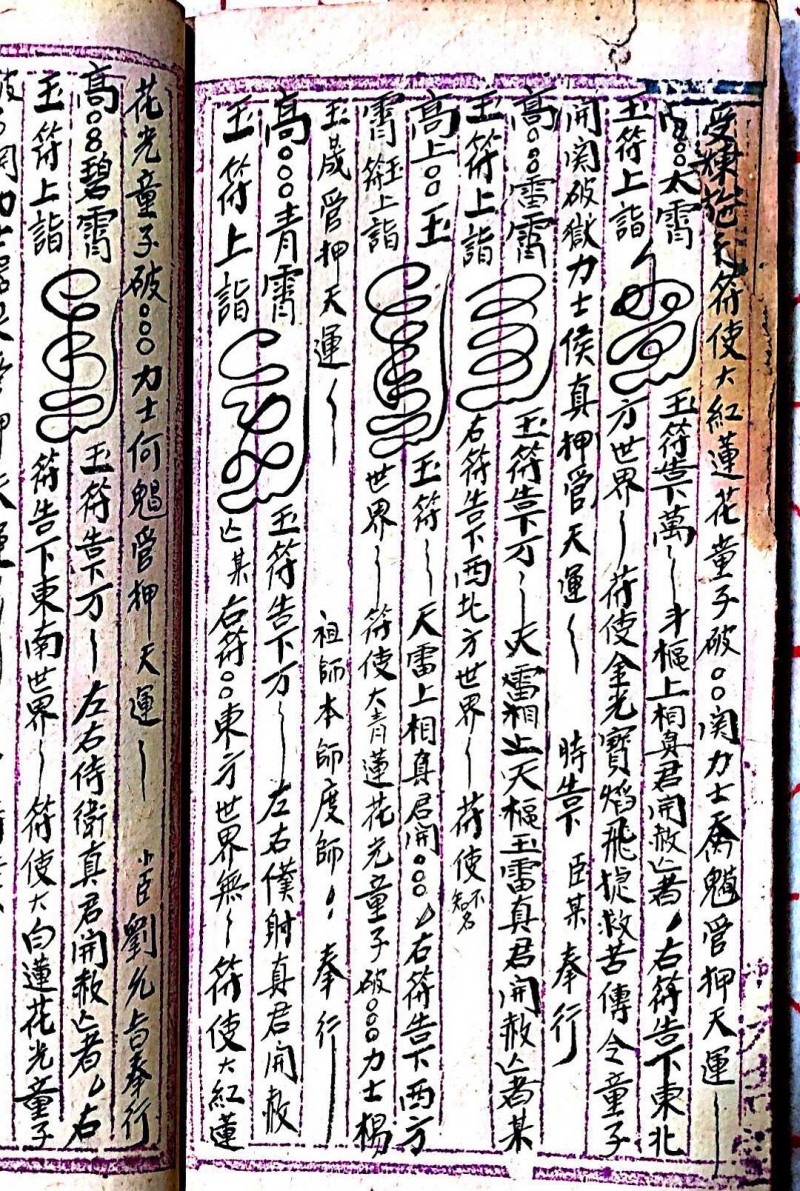 受煉施行符使大紅蓮花童子破〇〇関力士喬魈管押天運〜
高〇〇太霄 玉符告下萬〜斗樞上相真君開赦亡者〻右符告下東北
玉符上詣 方世界〜符使金光寶焰飛捷救苦傳令童子
開関破獄力士侯真押管天運〜 時告下 臣某奉行
高〇〇雷霄 玉符告下万〜天雷相上天樞玉雷真君開赦亡者某
玉符上詣 右符告下西北方世界〜符使不知名
高上〇〇玉 玉符〜天雷上相真君開〇〇〇〻右符告下西方
霄玉符上詣 世界〜符使大青蓮花光童子破〇〇〇力士楊
玉晟管押天運〜 祖師本師度師〻奉行
高〇〇〇青霄 玉符告下万〜左右僕射真君開赦
玉符上詣 亡某右符〇〇東方世界無〜符使大紅蓮
花光童子破〇〇〇力士何魈管押天運〜 小臣劉允与奉行
高〇〇碧霄 玉符告下万〜左右侍衛真君開赦亡者〻右
玉符上詣 符告下東南世界〜符使大白蓮花光童子